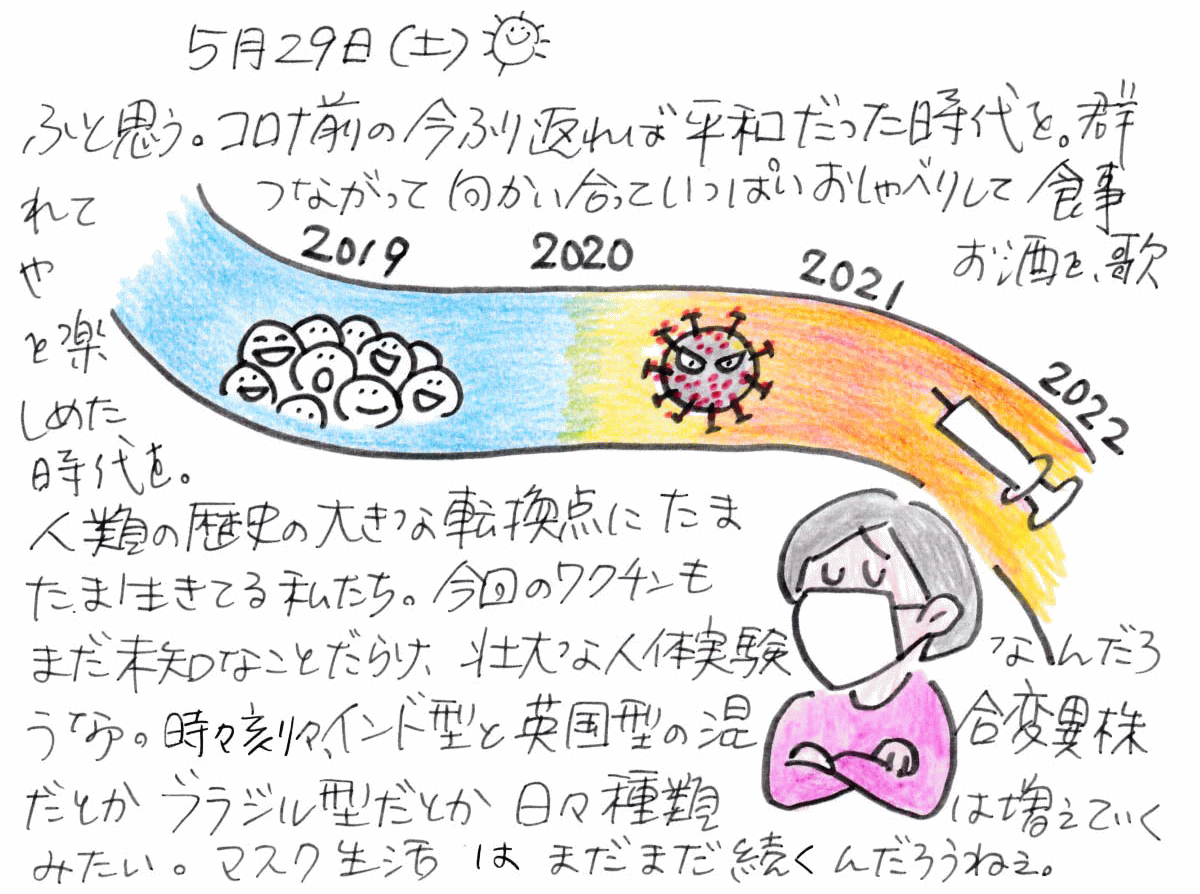 5月29日(土)
ふと思う。コロナ前の今ふり返れば平和だった時代を。群
れて つながって向かい合っていっぱいおしゃべりして 食事
や お酒を、歌
を楽
しめた
時代を。
2019 2020 2021 2022
人類の歴史の大きな転換点にたま
たま生きてる私たち。今回のワクチンも
まだ未知なことだらけ、壮大な人体実験なんだろ
うなあ。時々刻々、インド型と英国型の混合変異株
だとかブラジル型だとか日々種類は増えていく
みたい。マスク生活はまだまだ続くんだろうねぇ。